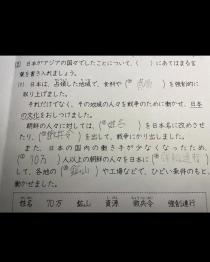 ② 日本がアジアの国々でしたことについて、( )にあてはまる言
葉を書き入れましょう。
(1) 日本は、占領した地域で、食料や(① 資源 )を強制的に
取り上げました。
それだけでなく、その地域の人々を戦争のために働かせ、日本
の文化をおしつけました。
朝鮮の人々に対しては、(② 姓名 )を日本名に改めさせ
たり、(③ 徴兵令 )を出して、戦争にかり出しました。
また、日本の国内の働き手が少なくなったため、
(④ 70万 )人以上の朝鮮の人々を日本に(⑤ 強制連行 )
して、各地の(⑥ 鉱山 )や工場などで、ひどい条件のもと
働かせました。
姓名 70万 鉱山 資源 徴兵令 強制連行